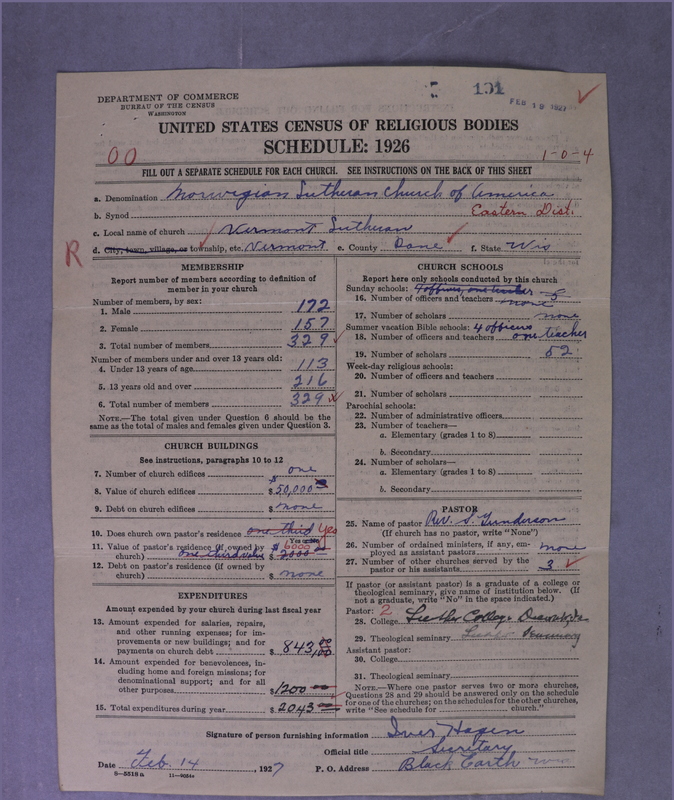 101
FEB 18 1927
DEPARTMENT OF COMMERCE
BUREAU OF THE CENSUS
WASHINGTON
UNITED STATES CENSUS OF RELIGIOUS BODIES
SCHEDULE: 1926
00
1-0-4
FILL OUT A SEPARATE SCHEDULE FOR EACH CHURCH. SEE INSTRUCTIONS ON THE BACK OF THIS SHEET
a. Denomination Norwegian Lutheran Church of America
b. Synod Eastern Dist.
c. Local name of church Vermont Lutheran
R
d. City, town, village, or township, etc. Vermont e. County Dane f. State Wis
MEMBERSHIP
Report number of members according to definition of
member in your church
Number of members, by sex:
1. Male 172
2. Female 157
3. Total number of members 329
Number of members under and over 13 years old:
4. Under 13 years of age 113
5. 13 years old and over 216
6. Total number of members 329
NOTE.—The total given under Question 6 should be the
same as the total of males and females given under Question 3.
CHURCH BUILDINGS
See instructions, paragraphs 10 to 12
7. Number of church edifices one
8. Value of church edifices $50,000
9. Debt on church edifices $ none
10. Does church own pastor's residence one third Yes
Yes or No
11. Value of pastor's residence (if owned by $6000
church) one third value $2000
12. Debt on pastor's residence (if owned by
church) $ none
EXPENDITURES
Amount expended by your church during last fiscal year
13. Amount expended for salaries, repairs,
and other running expenses; for im-
provements or new buildings; and for
payments on church debt $ 843.00
14. Amount expended for benevolences, in-
cluding home and foreign missions; for
denominational support; and for all
other purposes $1200
15. Total expenditures during year $ 2043
CHURCH SCHOOLS
Report here only schools conducted by this church
Sunday schools: 4 officers, one teacher
16. Number of officers and teachers none 5
17. Number of scholars none
Summer vacation Bible schools: 4 officers
18. Number of officers and teachers one teacher
19. Number of scholars 52
Week-day religious schools:
20. Number of officers and teachers
21. Number of scholars
Parochial schools:
22. Number of administrative officers
23. Number of teachers—
a. Elementary (grades 1 to 8)
b. Secondary
24. Number of scholars—
a. Elementary (grades 1 to 8)
b. Secondary
PASTOR
25. Name of pastor Rev. S. Gunderson
(If church has no pastor, write "None")
26. Number of ordained ministers, if any, em-
ployed as assistant pastors none
27. Number of other churches served by the
pastor or his assistants 3
If pastor (or assistant pastor) is a graduate of a college or
theological seminary, give name of institution below. (If
not a graduate, write "No" in the space indicated.)
Pastor: 2
28. College Luther College Decorah Ia
29. Theological seminary Luther Seminary
Assistant pastor:
30. College
31. Theological seminary
NOTE.—Where one pastor serves two or more churches,
Questions 28 and 29 should be answered only on the schedule
for one of the churches; on the schedules for the other churches,
write "See schedule for church."
Signature of person furnishing information Iver Hagen
Official title Secretary
Date Feb. 14, 1927 P. O. Address Black Earth Wis
8-5518a 11-9084